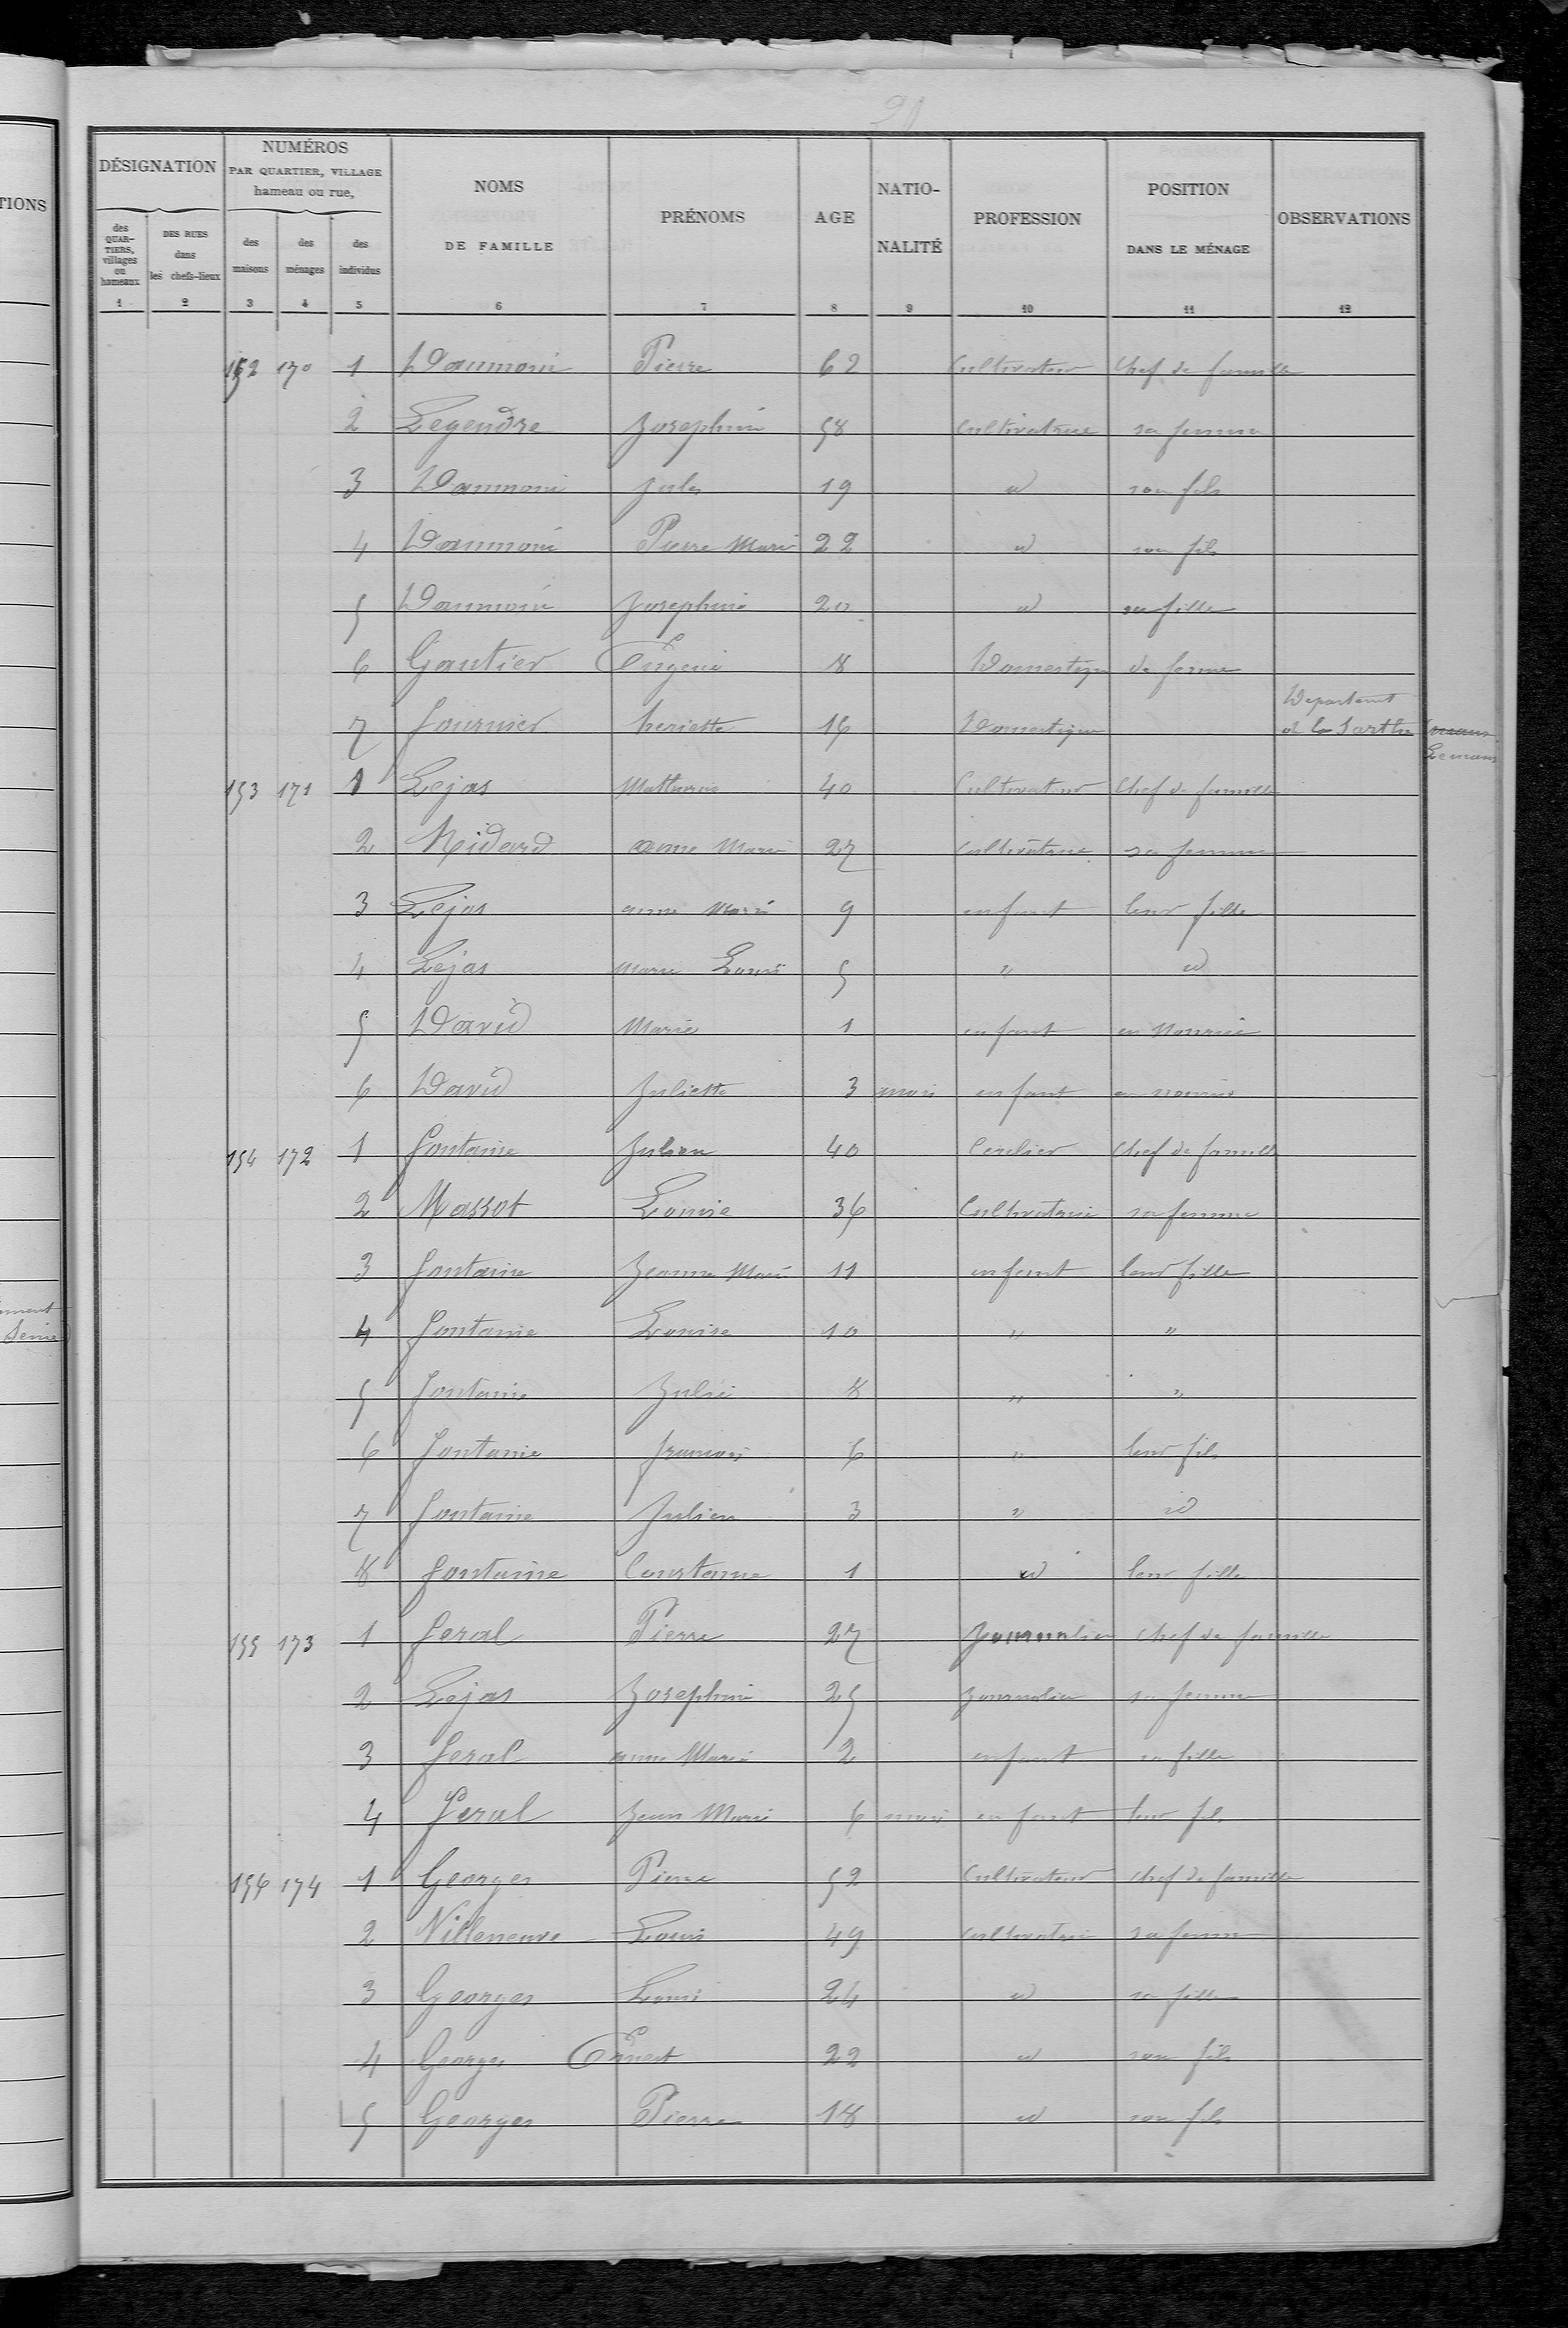 21
DÉSIGNATION
NUMÉROS
PAR QUARTIER, VILLAGE
hameau ou rue,
NOMS
DE FAMILLE
PRÉNOMS
AGE
NATIO-
NALITÉ
PROFESSION
POSITION
DANS LE MÉNAGE
OBSERVATIONS
des QUAR-TIERS, villages ou hameaux
DES RUES dans les chefs-lieux
des maisons
des ménages
des individus
1 2 3 4 5 6 7 8 9 10 11 12
152 170 1 Daumoin Pierre 62 Cultivateur Chef de famille
2 Legendre Josephine 58 Cultivatrice sa femme
3 Daumoin Jules 19 id son fils
4 Daumoin Pierre Marie 22 id son fils
5 Daumoin Josephine 20 id sa fille
6 Gautier Eugenie 18 Domestique de ferme
7 fournier heriette 16 Domestique Departement de la Sarthe Lemans
153 171 1 Lejas Mathurin 40 Cultivateur Chef de famille
2 Ridard anne Marie 27 Cultivatrice sa femme
3 Lejas anne Marie 9 enfant leur fille
4 Lejas marie Louise 5 " id
5 David Marie 1 enfant en nourrice
6 David Juliette 3 mois enfant en nourrice
154 172 1 fontaine Julien 40 Cerclier Chef de famille
2 Massot Louise 36 Cultivatrice sa femme
3 fontaine Jeanne Marie 11 enfant leur fille
4 fontaine Louise 10 " "
5 fontaine Julie 8 " "
6 fontaine francois 6 " leur fils
7 fontaine Julien 3 " id
8 fontaine Constance 1 id leur fille
155 173 1 feral Pierre 27 Journalier chef de famille
2 Lejas Josephine 25 Journalier sa femme
3 feral anne Marie 2 enfant sa fille
4 feral Jean Marie 6 mois enfant leur fils
156 174 1 Georges Pierre 52 Cultivateur chef de famille
2 Villeneuve Louise 49 cultivatrice sa femme
3 Georges Louise 24 id sa fille
4 Georges Ernest 22 id son fils
5 Georges Pierre 18 id son fils